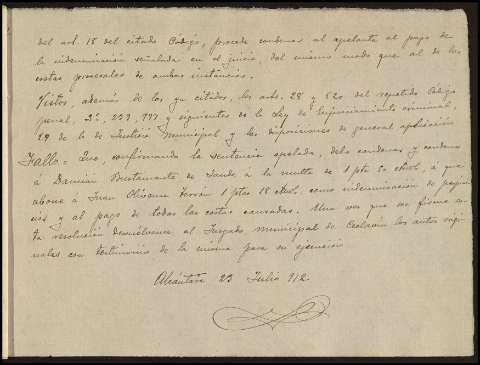 del art. 18 del citado Código, procede condenar al apelante al pago de
la indemnización señalada en el juicio, del mismo modo que al de las
costas procesales de ambas instancias.
Vistos, además de los ya citados, los arts. 28 y 620 del repetido Código
penal, 2º, 239, 977 y siguientes de la Ley de Enjuiciamiento criminal,
29 de la de Justicia Municipal y las disposiciones de general aplicación
Fallo = Que, confirmando la sentencia apelada, debo condenar y condeno
á Damián Bustamante de Sande á la multa de 1 pta 50 cts, á que
abone á Juan Olivenza 1 ptas 18 cts. como indemnización de perjui-
cios y al pago de todas las costas causadas. Una vez que sea firme es-
ta resolución devuélvanse al Juzgado municipal de Ceclavín los autos origi-
nales con testimonio de la misma para su ejecución
Alcántara 23 Julio 912